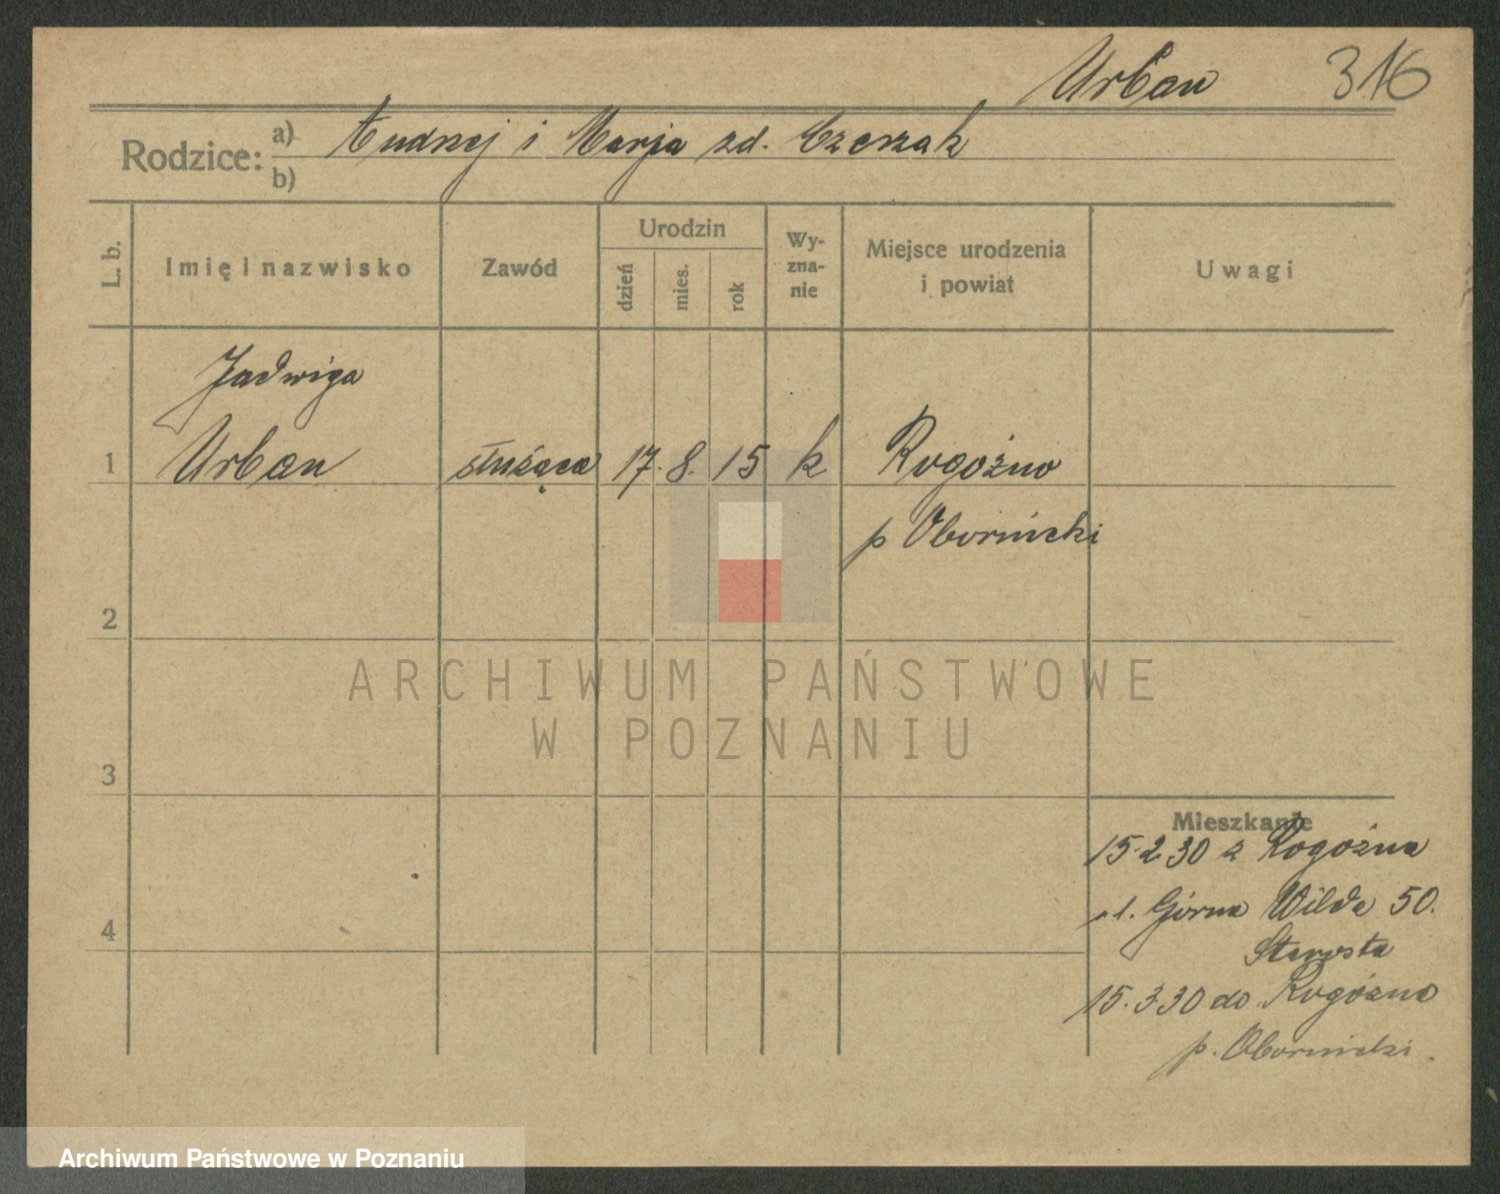 Urban 316
Rodzice: a) Andrzej i Marja zd. Czerzak
b)
L. b.
Imię i nazwisko
Zawód
Urodzin
dzień
mies.
rok
Wy-
zna-
nie
Miejsce urodzenia
i powiat
Uwagi
Jadwiga
1 Urban służąca 17. 8. 15 k Rogoźno
p Obornicki
2
3
4
Mieszkanie
15.2.30 z Rogoźna
ul. Górna Wilda 50.
Starosta
15.3.30 do Rogoźno
p. Obornicki.
ARCHIWUM PAŃSTWOWE
W POZNANIU
Archiwum Państwowe w Poznaniu